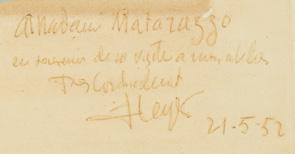 A Madame Matarazzo
en souvenir de sa visite à mon atelier
Très Cordialement
21-5-52